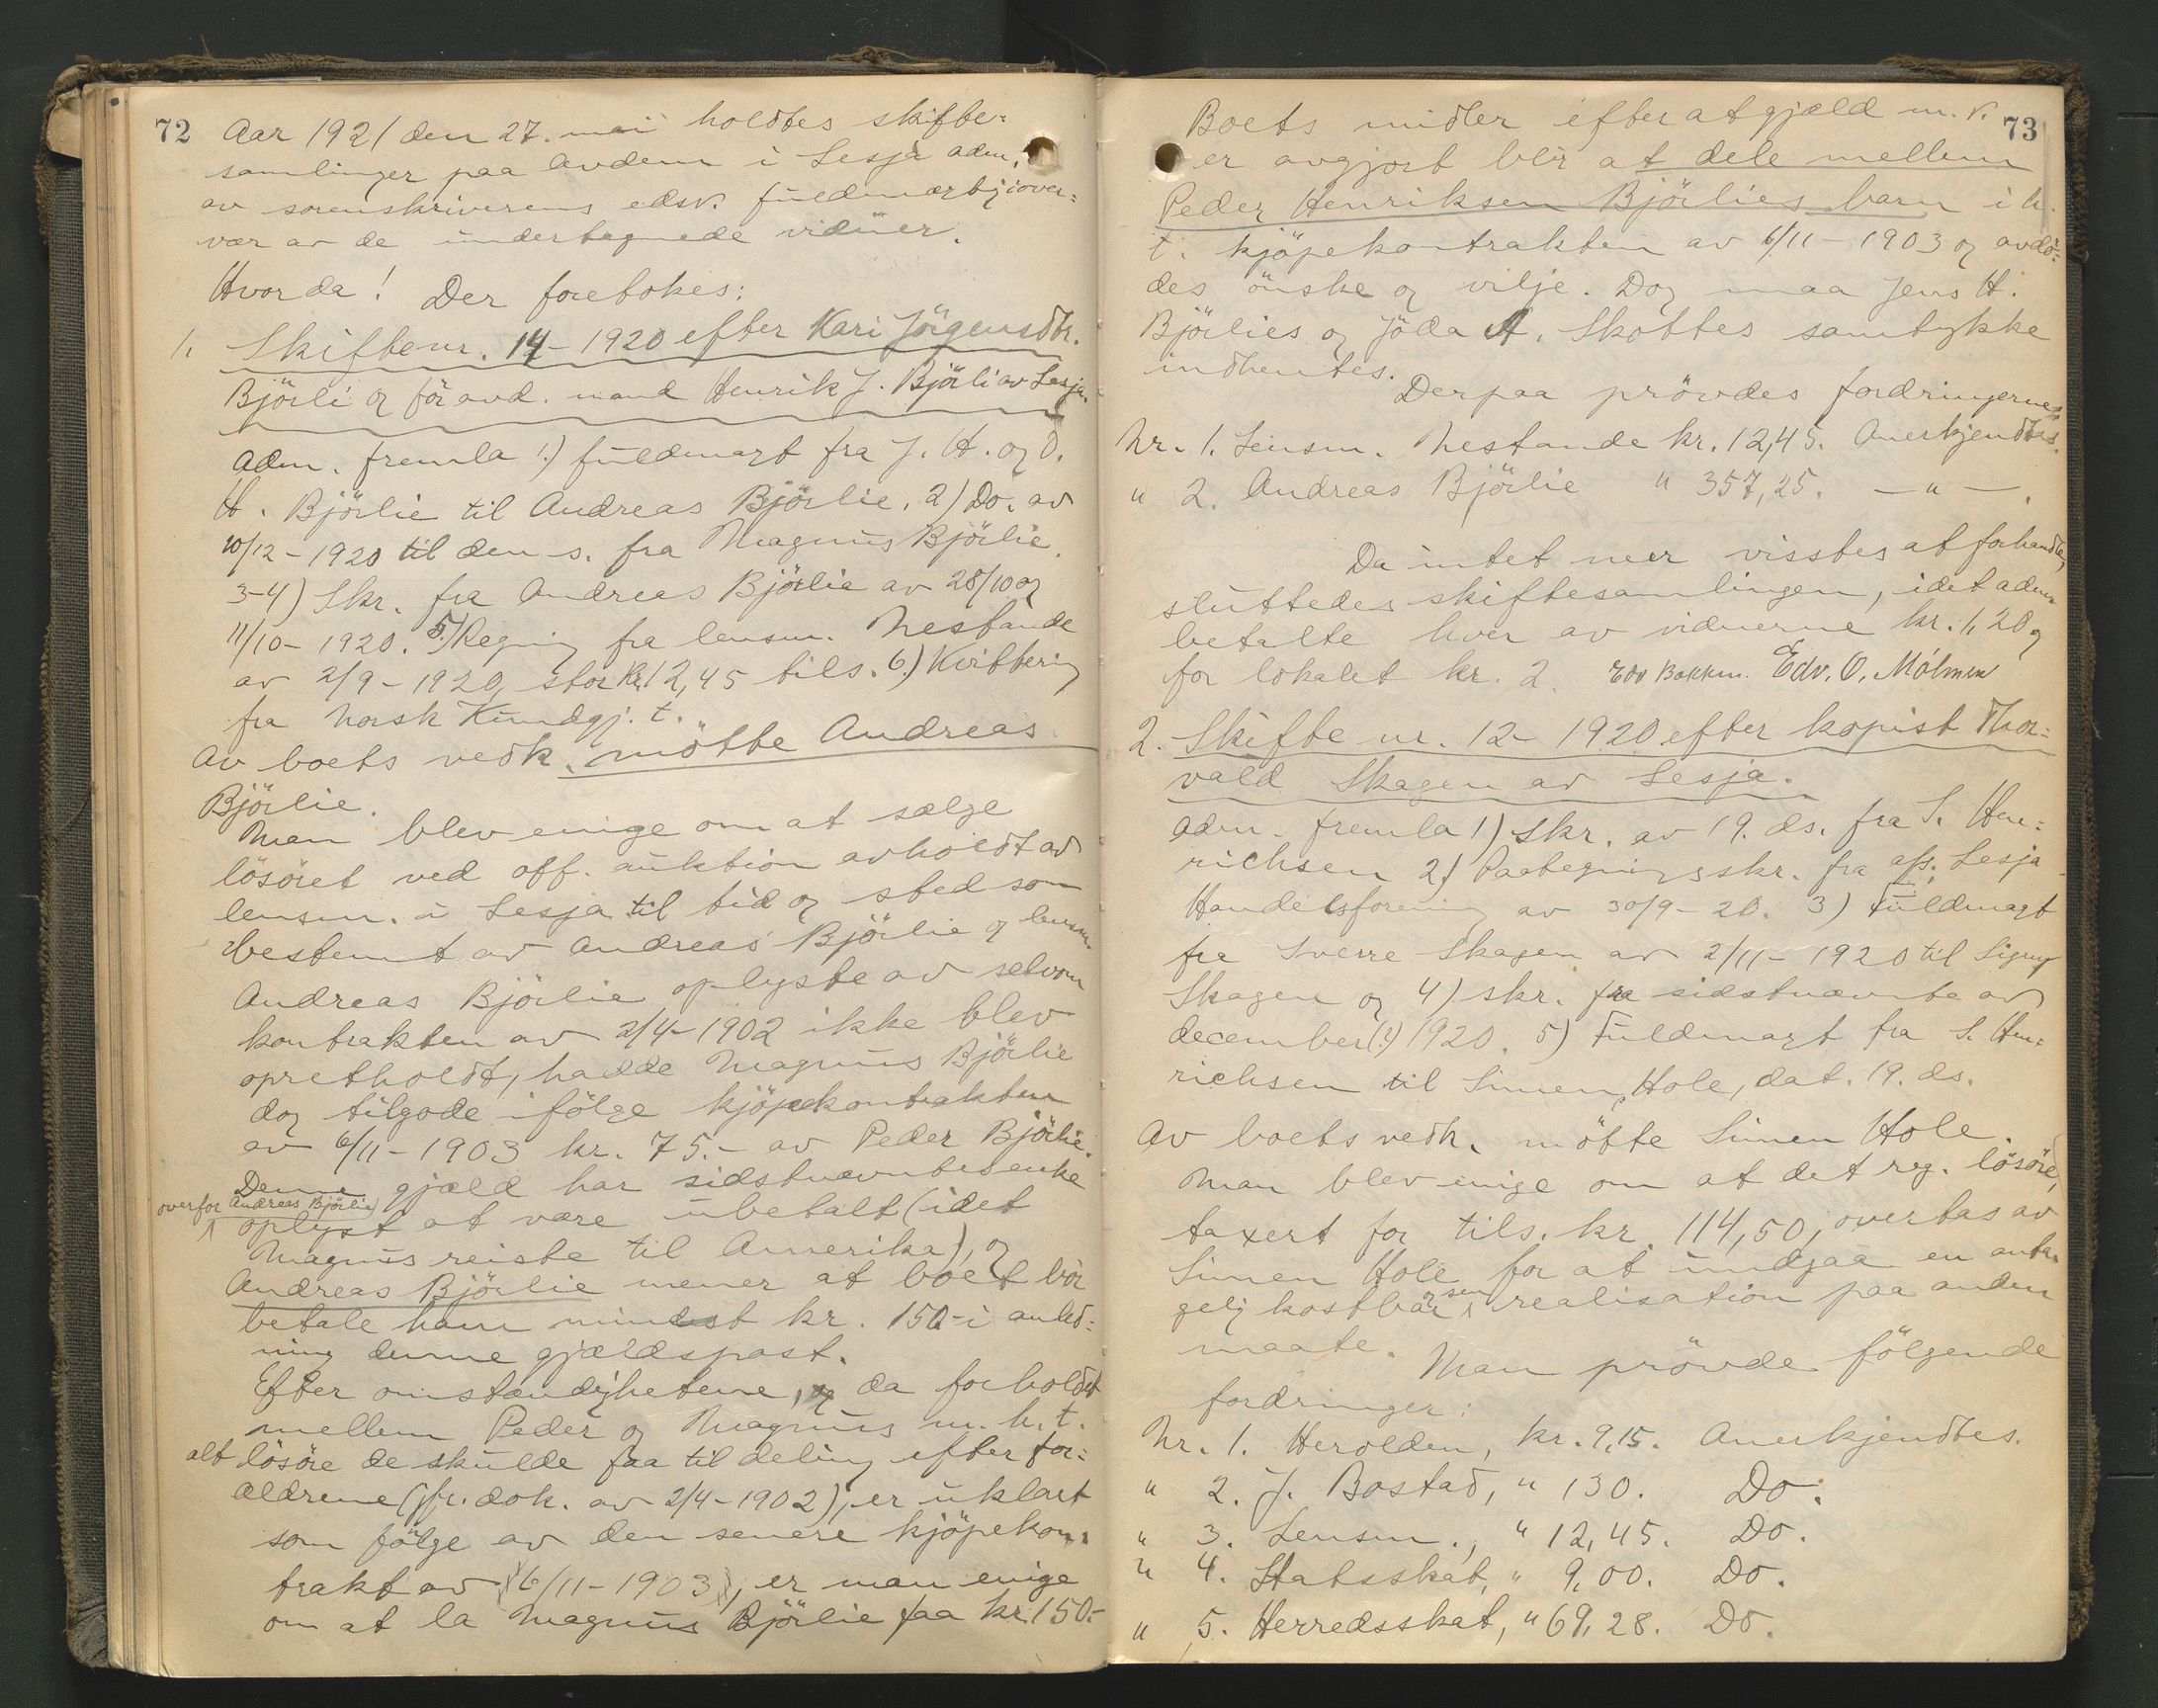 72
Aar 1921 den 27. mai holdtes skifte=
samlinger paa Avdem i Lesja adm.
av sorenskriverens edsv. fuldmægtig i over=
vær av de undertegnede vidner.
Hvorda! Der foretokes:
1. Skifte nr. 14 - 1920 efter Kari Jörgensdtr.
Björli og för avd. mand Henrik J. Björli av Lesja.
Adm. fremla 1.) fuldmagt fra J. H. og O.
H. Björlie til Andreas Björlie. 2) Do. av
10/12 - 1920 til den s. fra Magnus Björlie.
3-4) Skr. fra Andreas Björlie av 28/10 og
11/10 - 1920. 5.) Regning fra lensm. Nestande
av 2/9 - 1920, stor kr. 12,45 tils. 6.) Kvittering
fra Norsk Kundgj. t.
Av boets vedk. mötte Andreas
Björlie.
Man blev enige om at sælge
lösöret ved off. auktion avholdt av
lensm. i Lesja til tid og sted som
bestemt av Andreas Björlie og lensm.
Andreas Björlie oplyste av selvom
kontrakten av 2/4 - 1902 ikke blev
opretholdt, hadde Magnus Björlie
dog tilgode ifölge kjöpekontrakten
av 6/11 - 1903 kr. 75.- av Peder Björlie.
Denne gjæld har sidstnævntes enke
overfor Andreas Björlie
oplyst at være ubetalt (idet
Magnus reiste til Amerika), og
Andreas Björlie mener at boet bör
betale ham mindst kr. 150- i anled=
ning denne gjældspost.
Efter omstændighetene, og da forholdet
mellem Peder og Magnus m. h. t.
alt lösöre de skulde faa til deling efter for=
ældrene (jfr. dok. av 2/4 - 1902), er uklart
som fölge av den senere kjöpekon=
trakt av 6/11 - 1903, er man enige
om at la Magnus Björlie faa kr. 150.-
73
Boets midler efter at gjæld m. v.
er avgjort blir at dele mellem
Peder Henriksen Björlies barn i h.
t. kjöpekontrakten av 6/11 - 1903 og avdö=
des önske og vilje. Dog maa Jens H.
Björlies og Jöda A. Skottes samtykke
indhentes.
Derpaa prövdes fordringerne
Nr. 1. Lensm. Nestande kr. 12,45. Anerkjendtes.
" 2. Andreas Björlie " 357,25. — " —.
Da intet mer visstes at forhandle,
sluttedes skiftesamlingen, idet adm.
betalte hver av vidnerne kr. 1,20 og
for lokalet kr. 2. Edv Bakken. Edv. O. Mölmen
2. Skifte nr. 12 - 1920 efter kopist Thor=
vald Skagen av Lesja.
Adm. fremla 1) Skr. av 19. ds. fra S. Hen=
richsen 2) Paategningsskr. fra A/S. Lesja
Handelsforening av 30/9 - 20. 3) Fuldmagt
fra Sverre Skagen av 2/11 - 1920 til Signy
Skagen og 4) skr. fra sidstnævnte av
december (?) 1920. 5) Fuldmagt fra S. Hen=
richsen til Simen Hole, dat. 19. ds.
Av boets vedk. mötte Simen Hole.
Man blev enige om at det reg. lösöre,
taxert for tils. kr. 114,50, overtas av
Simen Hole for at undgaa en anta=
gelig kostbar og sen realisation paa anden
maate.
Man prövde fölgende
fordringer:
Nr. 1. Herolden, kr. 9,15. Anerkjendtes.
" 2. J. Bostad, " 130. Do.
" 3. Lensm., " 12,45. Do.
" 4. Statsskat, " 9,00. Do.
" 5. Herredsskat, " 69,28. Do.